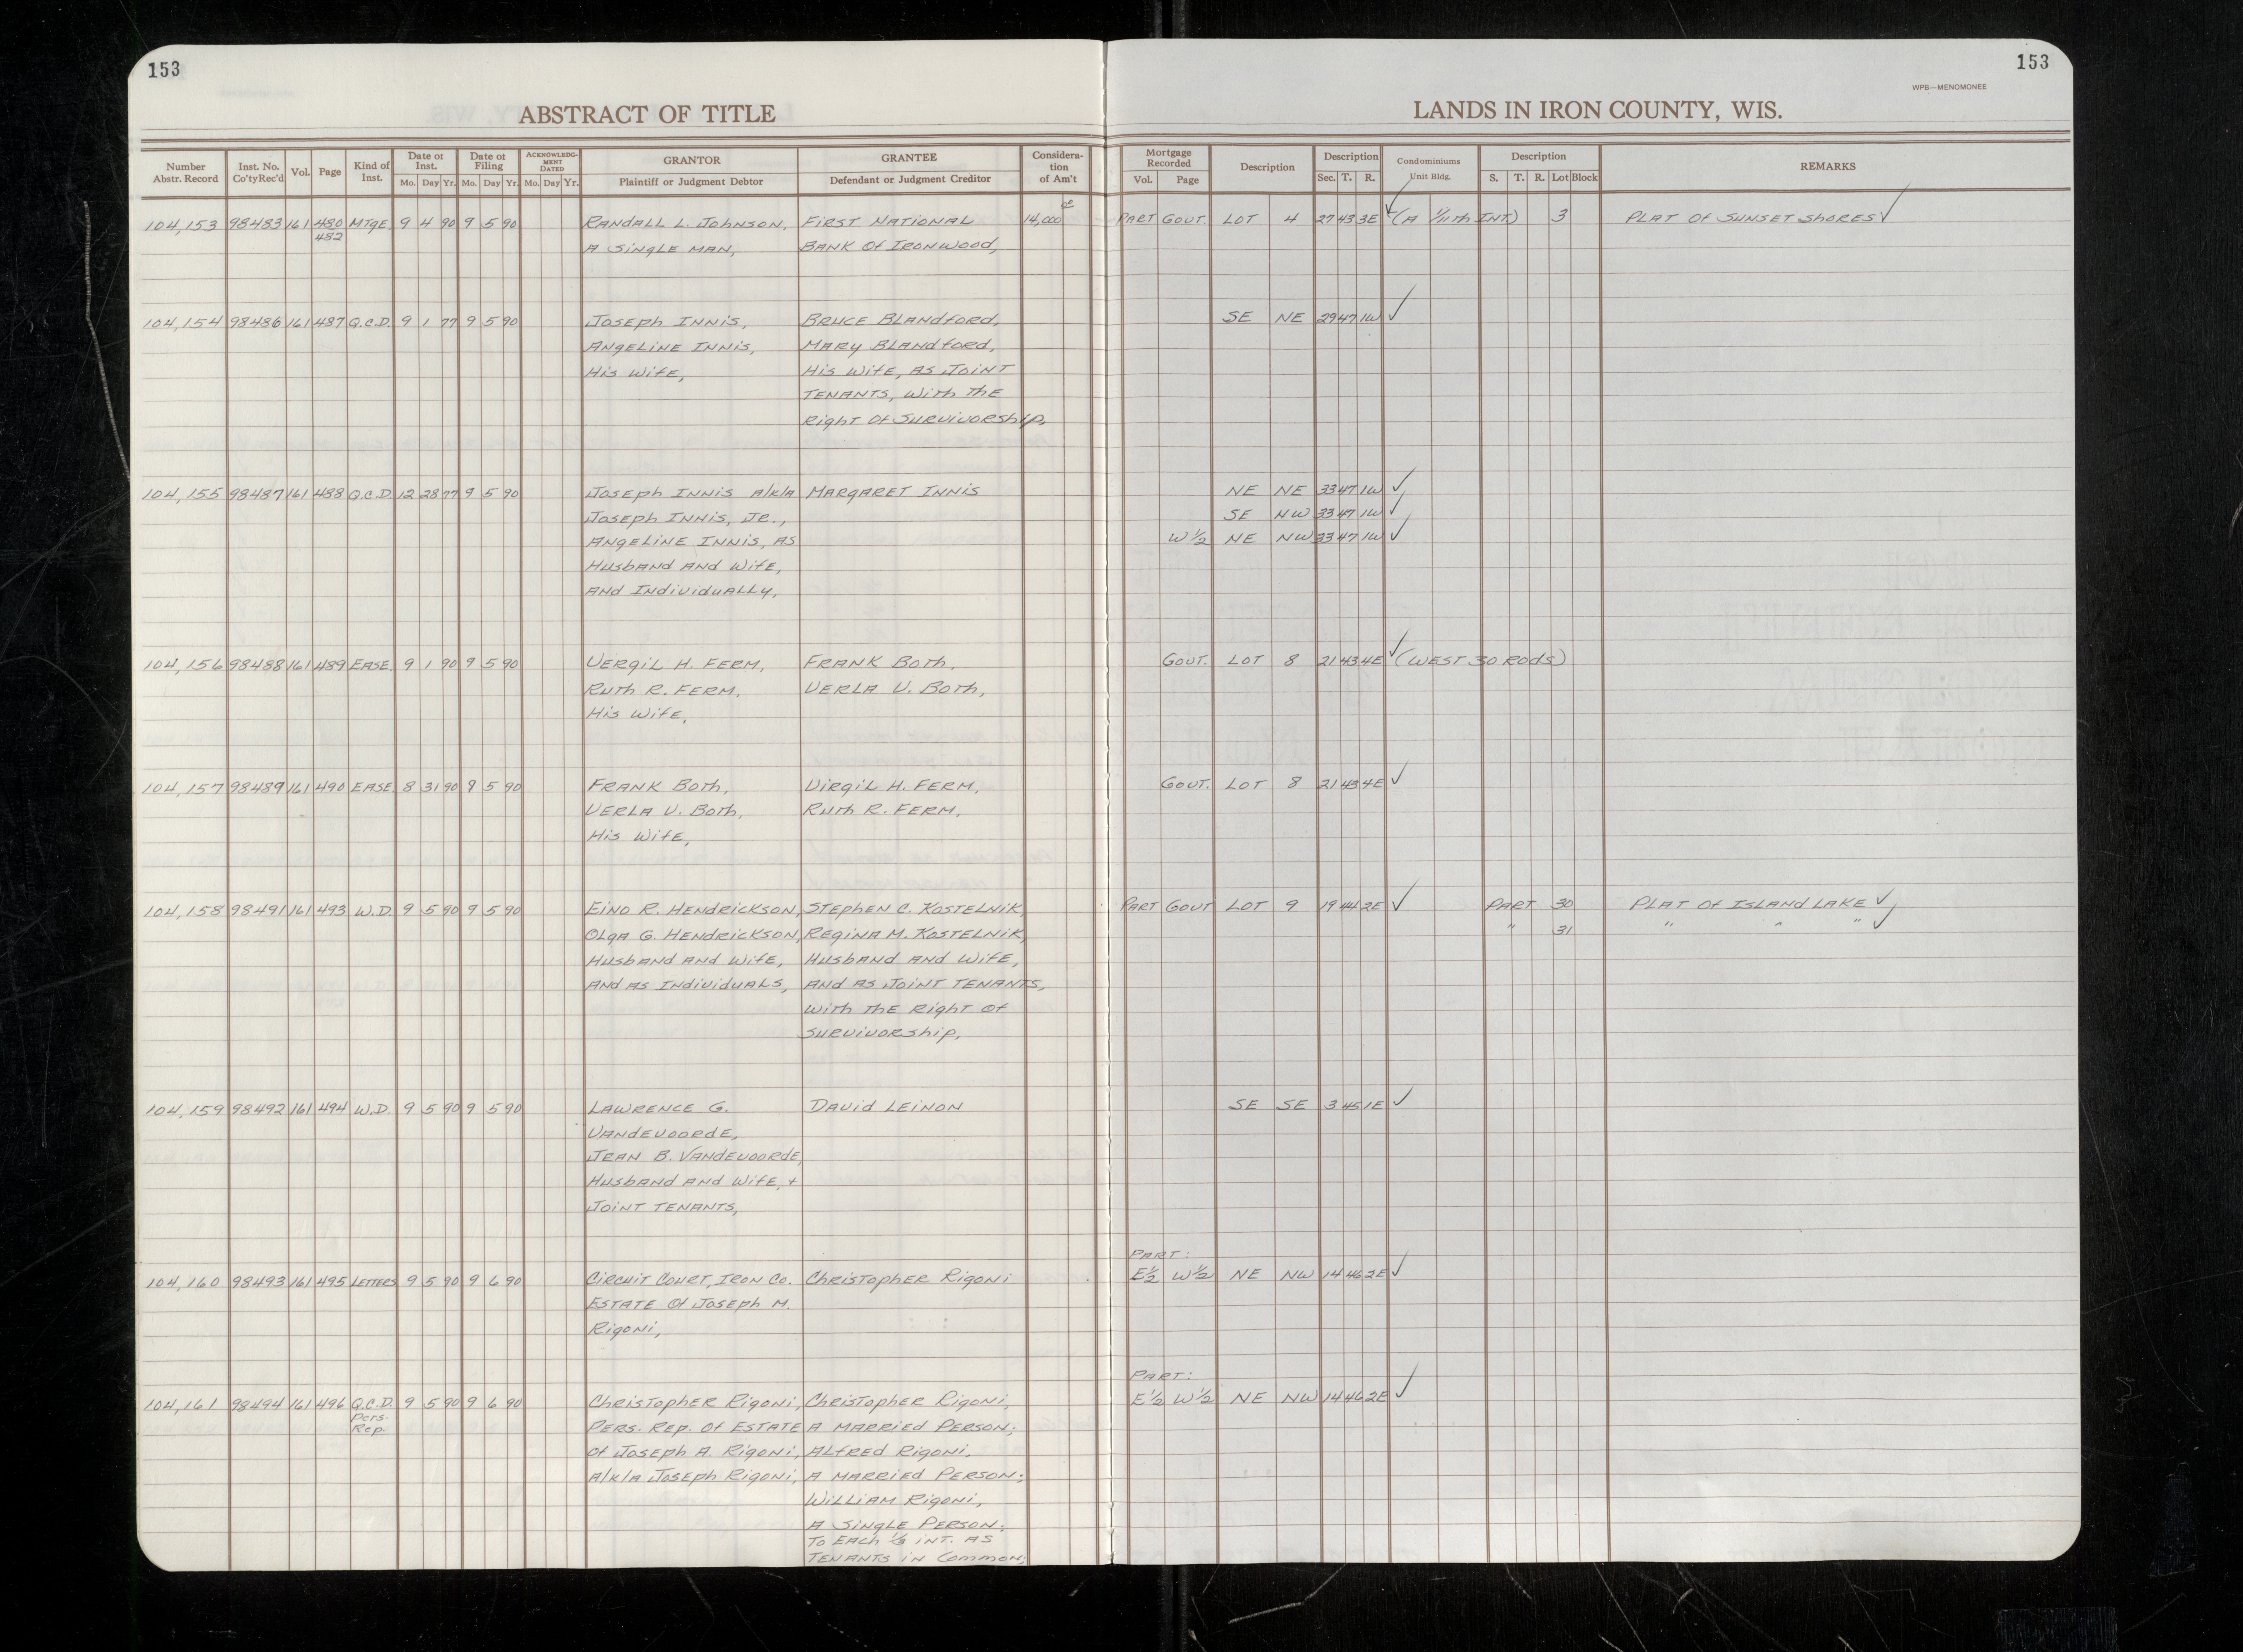 153
153
WPB—MENOMONEE
ABSTRACT OF TITLE
LANDS IN IRON COUNTY, WIS.
Number Abstr. Record | Inst. No. Co'ty Rec'd | Vol. | Page | Kind of Inst. | Date of Inst. Mo. Day Yr. | Date of Filing Mo. Day Yr. | ACKNOWLEDGMENT DATED Mo. Day Yr. | GRANTOR Plaintiff or Judgment Debtor | GRANTEE Defendant or Judgment Creditor | Consideration of Am't | Mortgage Recorded Vol. Page | Description | Description Sec. T. R. | Condominiums Unit Bldg. | Description S. T. R. Lot Block | REMARKS
104,153 98483 161 480 MTGE. 9 4 90 9 5 90 RANDALL L. JOHNSON, FIRST NATIONAL 14,000 PART GOVT. LOT 4 27 43 3E (A 1/11th INT.) 3 PLAT OF SUNSET SHORES
482
A SINGLE MAN, BANK OF IRONWOOD,
104,154 98486 161 487 Q.C.D. 9 1 77 9 5 90 JOSEPH INNIS, BRUCE BLANDFORD, SE NE 29 47 1W
ANGELINE INNIS, MARY BLANDFORD,
HIS WIFE, HIS WIFE, AS JOINT
TENANTS, WITH THE
RIGHT OF SURVIVORSHIP,
104,155 98487 161 488 Q.C.D. 12 28 77 9 5 90 JOSEPH INNIS A/K/A MARGARET INNIS NE NE 33 47 1W
JOSEPH INNIS, JR., SE NW 33 47 1W
ANGELINE INNIS, AS W 1/2 NE NW 33 47 1W
HUSBAND AND WIFE,
AND INDIVIDUALLY,
104,156 98488 161 489 EASE. 9 1 90 9 5 90 VERGIL H. FERM, FRANK BOTH, GOVT. LOT 8 21 43 4E (WEST 30 RODS)
RUTH R. FERM, VERLA V. BOTH,
HIS WIFE,
104,157 98489 161 490 EASE. 8 31 90 9 5 90 FRANK BOTH, VIRGIL H. FERM, GOVT. LOT 8 21 43 4E
VERLA V. BOTH, RUTH R. FERM,
HIS WIFE,
104,158 98491 161 493 W.D. 9 5 90 9 5 90 EINO R. HENDRICKSON, STEPHEN C. KOSTELNIK, PART GOVT LOT 9 19 44 2E PART 30 PLAT OF ISLAND LAKE
OLGA G. HENDRICKSON, REGINA M. KOSTELNIK, " 31 " " "
HUSBAND AND WIFE, HUSBAND AND WIFE,
AND AS INDIVIDUALS, AND AS JOINT TENANTS,
WITH THE RIGHT OF
SURVIVORSHIP,
104,159 98492 161 494 W.D. 9 5 90 9 5 90 LAWRENCE G. DAVID LEINON SE SE 3 45 1E
VANDEVOORDE,
JEAN B. VANDEVOORDE,
HUSBAND AND WIFE, +
JOINT TENANTS,
PART:
104,160 98493 161 495 LETTERS 9 5 90 9 6 90 CIRCUIT COURT, IRON CO. CHRISTOPHER RIGONI E 1/2 W 1/2 NE NW 14 46 2E
ESTATE OF JOSEPH M.
RIGONI,
PART:
104,161 98494 161 496 Q.C.D. 9 5 90 9 6 90 CHRISTOPHER RIGONI, CHRISTOPHER RIGONI, E 1/2 W 1/2 NE NW 14 46 2E
Pers. Rep. PERS. REP. OF ESTATE A MARRIED PERSON;
OF JOSEPH A. RIGONI, ALFRED RIGONI,
A/K/A JOSEPH RIGONI, A MARRIED PERSON;
WILLIAM RIGONI,
A SINGLE PERSON;
TO EACH 1/3 INT. AS
TENANTS IN COMMON;